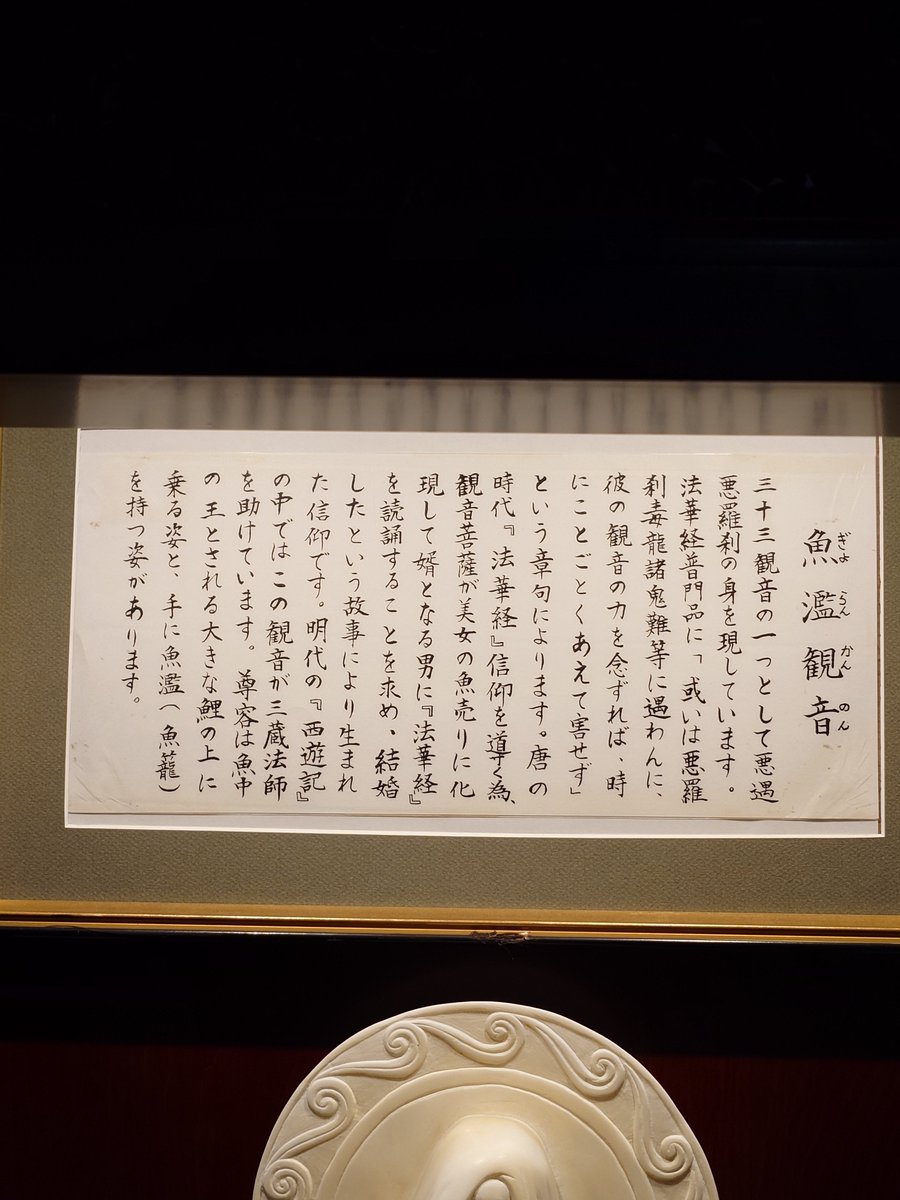 魚濫観音
ぎょらんかんのん
三十三観音の一つとして悪遇
悪羅刹の身を現しています。
法華経普門品に「或いは悪羅
刹毒龍諸鬼難等に遇わんに、
彼の観音の力を念ずれば、時
にことごとくあえて害せず」
という章句によります。唐の
時代『法華経』信仰を導く為、
観音菩薩が美女の魚売りに化
現して婿となる男に『法華経』
を読誦することを求め、結婚
したという故事により生まれ
た信仰です。明代の『西遊記』
の中ではこの観音が三蔵法師
を助けています。尊容は魚中
の王とされる大きな鯉の上に
乗る姿と、手に魚濫(魚籠)
を持つ姿があります。